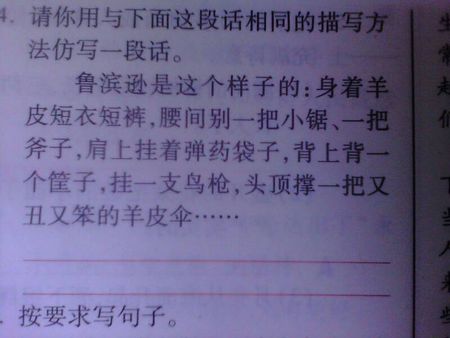 4. 请你用与下面这段话相同的描写方
法仿写一段话。
鲁滨逊是这个样子的：身着羊
皮短衣短裤，腰间别一把小锯、一把
斧子，肩上挂着弹药袋子，背上背一
个筐子，挂一支鸟枪，头顶撑一把又
丑又笨的羊皮伞……
. 按要求写句子。